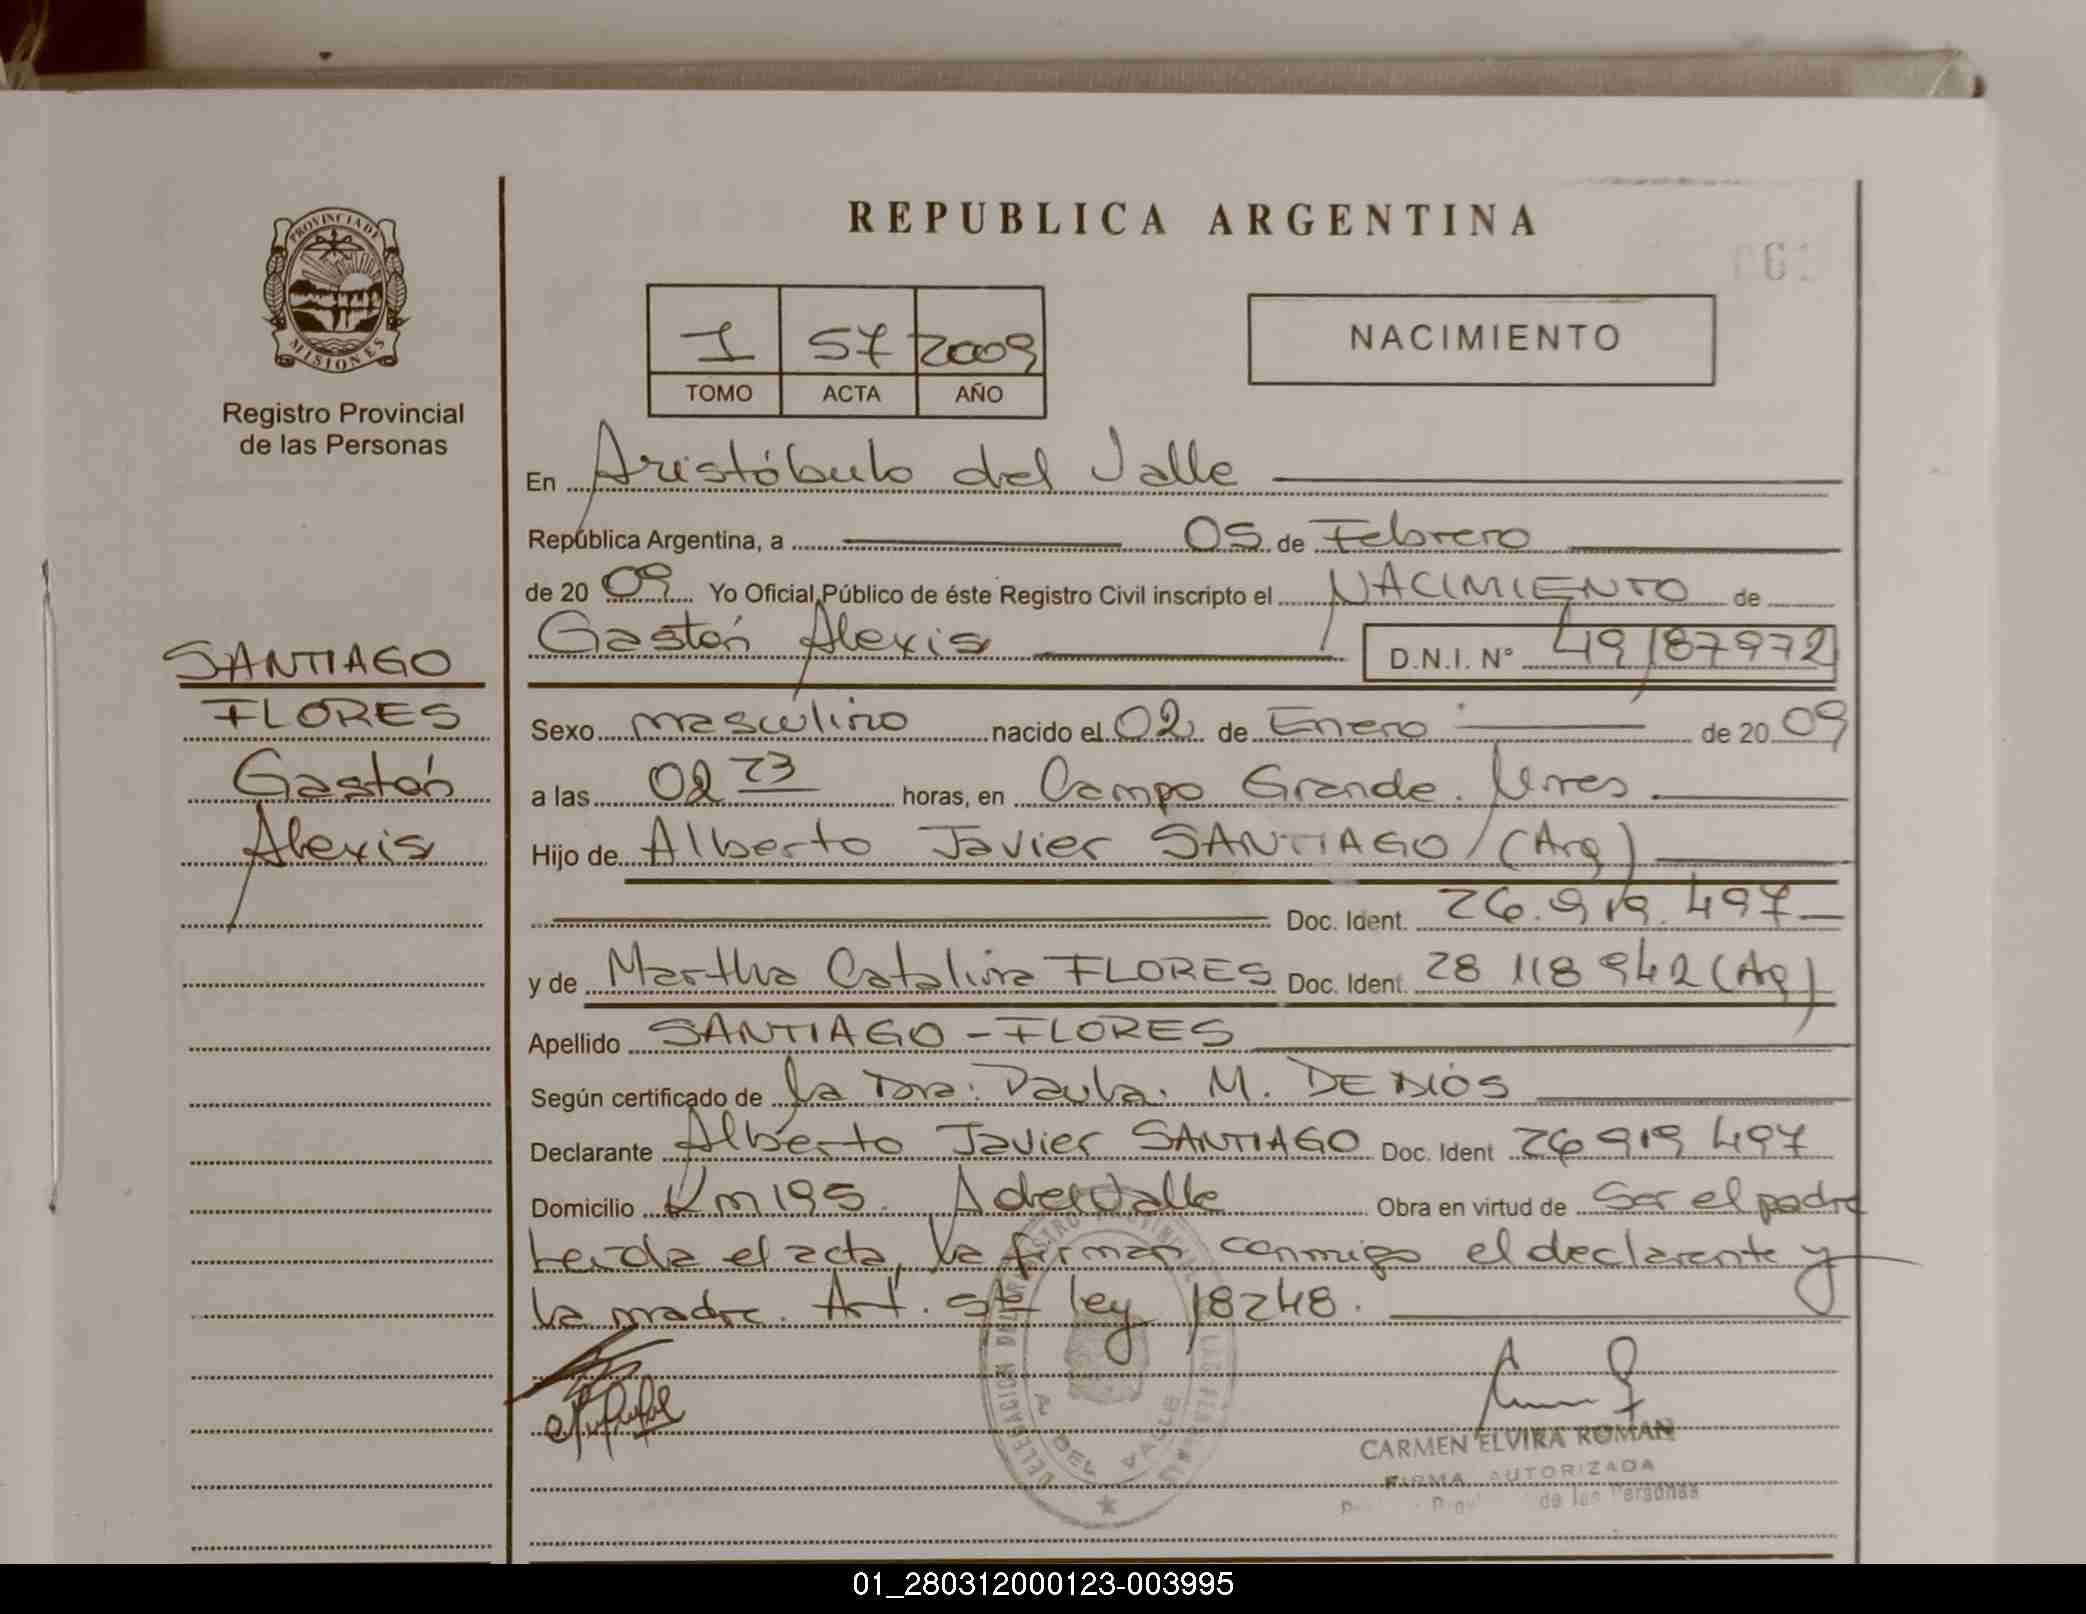 PROVINCIA DE
MISIONES
Registro Provincial
de las Personas
SANTIAGO
FLORES
Gastón
Alexis
REPUBLICA ARGENTINA
1 57 2009
TOMO ACTA AÑO
NACIMIENTO
En Aristóbulo del Valle
República Argentina, a 05 de Febrero
de 20 09 Yo Oficial Público de éste Registro Civil inscripto el NACIMIENTO de
Gastón Alexis D.N.I. N° 49187972
Sexo masculino nacido el 02 de Enero de 20 09
a las 02 23 horas, en Campo Grande. Mnes
Hijo de Alberto Javier SANTIAGO (Arg)
Doc. Ident. 26.919.497
y de Martha Catalina FLORES Doc. Ident. 28 118 942 (Arg)
Apellido SANTIAGO - FLORES
Según certificado de la Dra. Paula. M. DE DIOS
Declarante Alberto Javier SANTIAGO Doc. Ident 26 919 497
Domicilio Km 195. A del Valle Obra en virtud de Ser el padre
Leída el acta, la firman conmigo el declarante y
la madre. Art. 5to ley 18248.
CARMEN ELVIRA ROMAN
FIRMA AUTORIZADA
de las Personas
DELEGACION DEL REGISTRO PROVINCIAL DE LAS PERSONAS
A. DEL VALLE
01_280312000123-003995